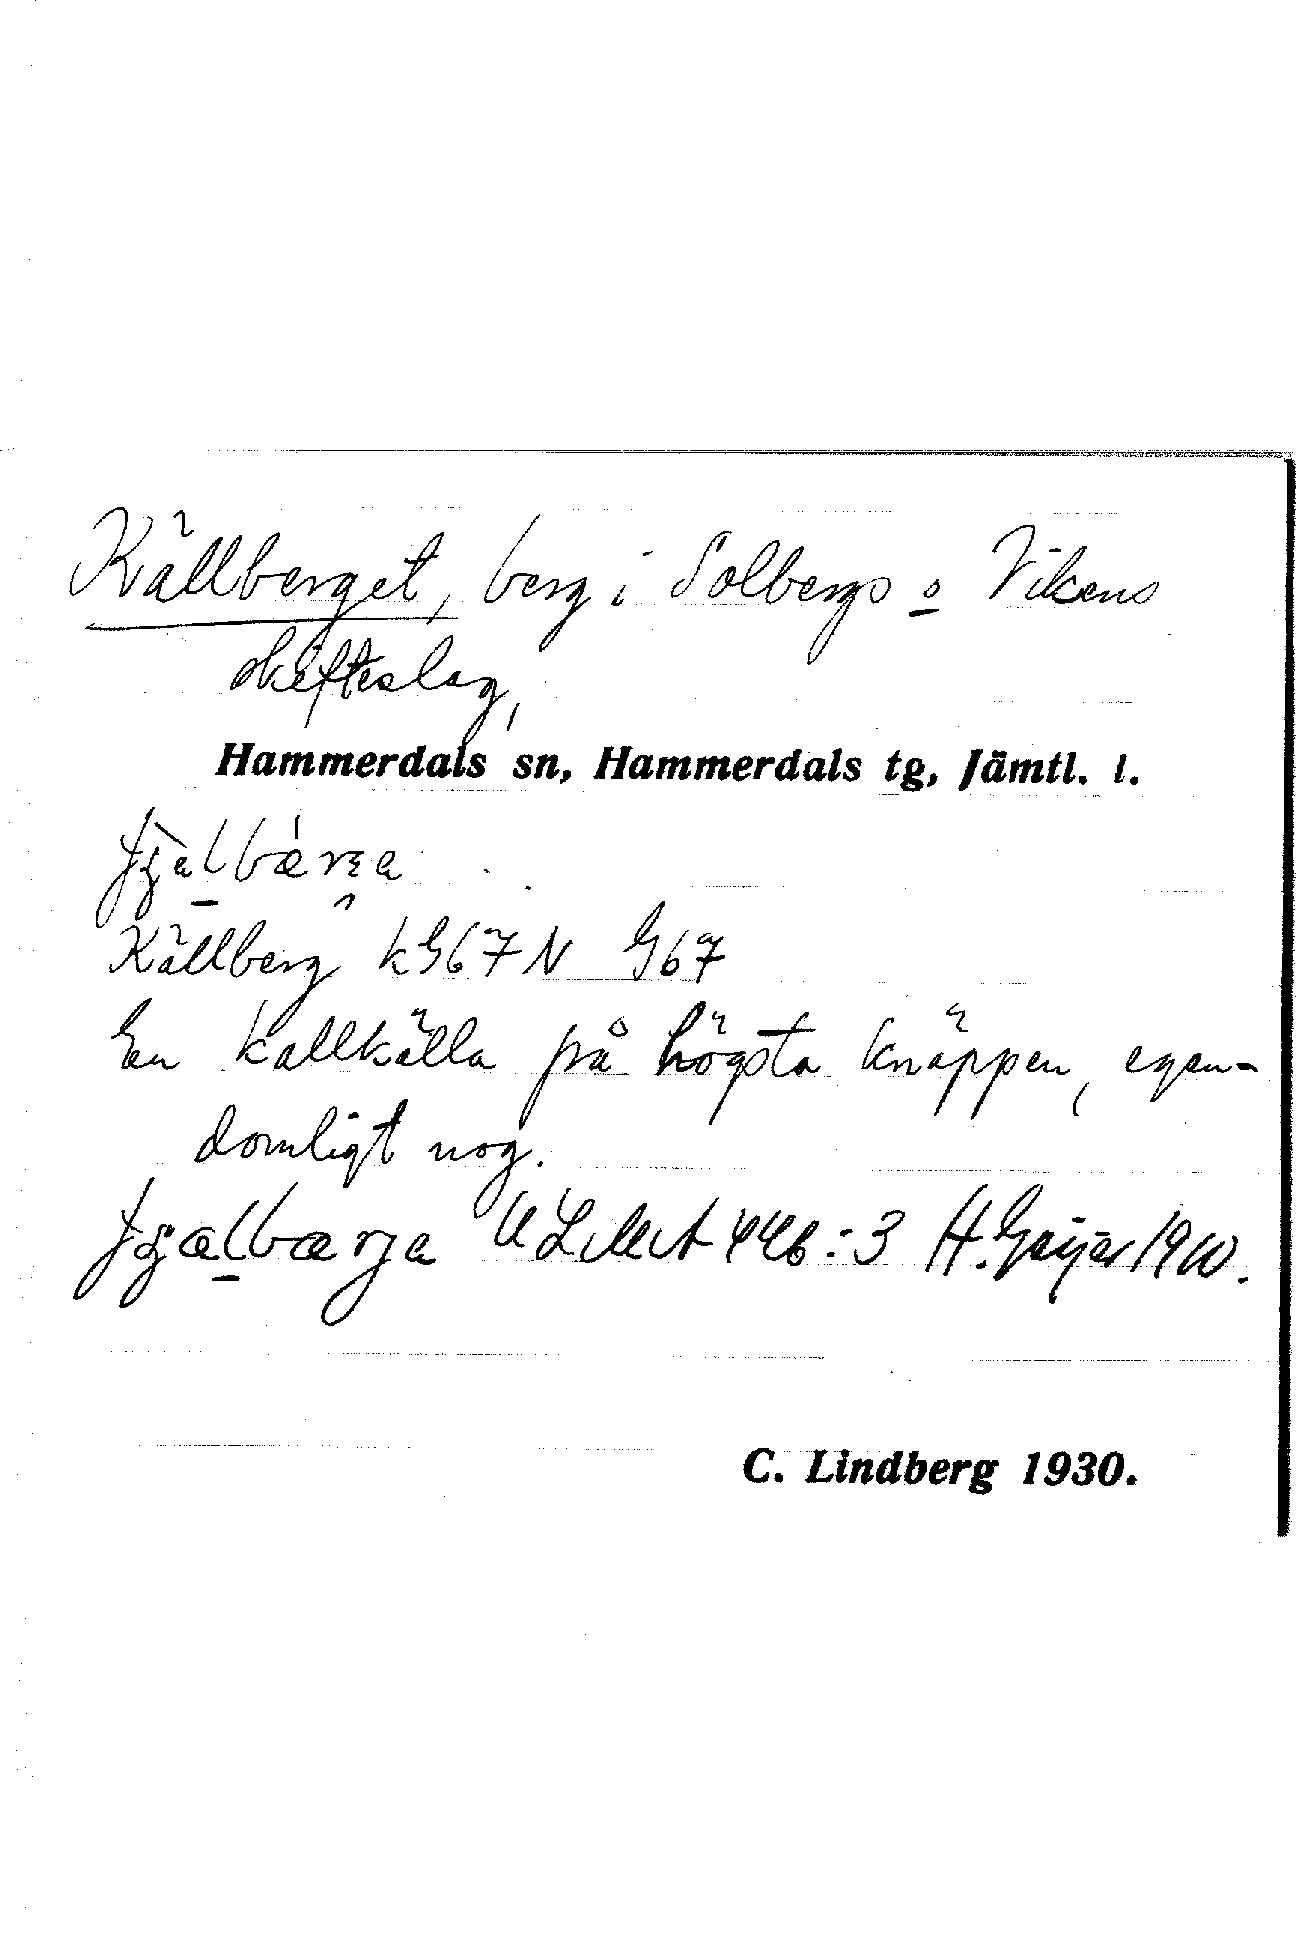 Källberget, berg i Solbergs o Vikens
skifteslag,
Hammerdals sn, Hammerdals tg, Jämtl. l.
Källberg k G67 N G67
En kallkälla på högsta knäppen, egen-
domligt nog.
ULMA 446:3 H. Geijer 1910.
C. Lindberg 1930.